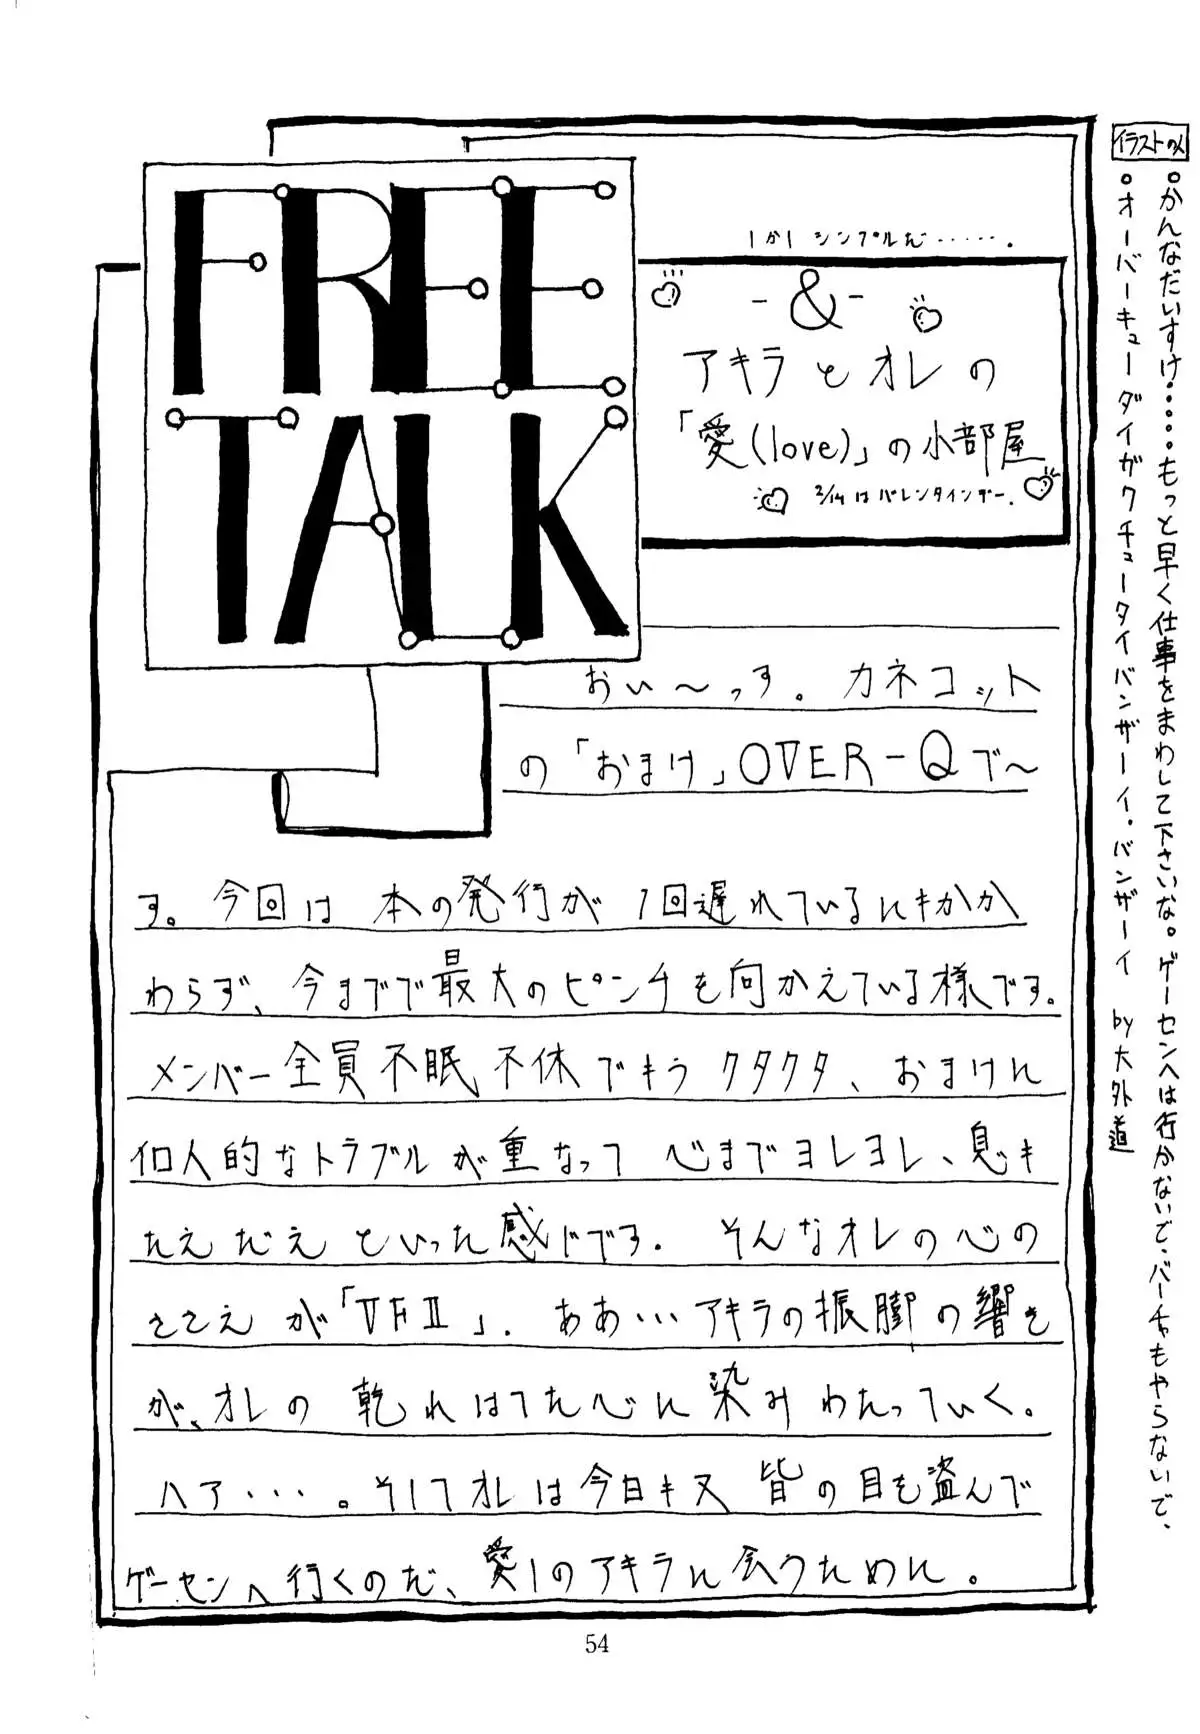 FREE
TALK
1か1 シンプルだ……。
-&-
アキラとオレの
「愛(love)」の小部屋
2/14はバレンタインデー.
おい〜っす。カネコット
の「おまけ」OVER-Qで〜
す。今回は 本の発行が 1回遅れているにもかか
わらず、今までで最大のピンチを向かえている様です。
メンバー全員不眠不休でもうクタクタ、おまけに
個人的なトラブルが重なって 心までヨレヨレ、息も
たえだえ といった感じです. そんなオレの心の
ささえ が「VFⅡ」. ああ…アキラの振脚の響き
が、オレの 乾れはてた心に染みわたっていく。
ハア…。そしてオレは今日も又 皆の目を盗んで
ゲーセンへ行くのだ、愛しのアキラに会うために。
イラストの人
。かんなだいすけ……もっと早く仕事をまわして下さいな。ゲーセンへは行かないで、バーチャもやらないで、
。オーバーキューダイガクチュータイバンザーイ.バンザーイ by大外道
54